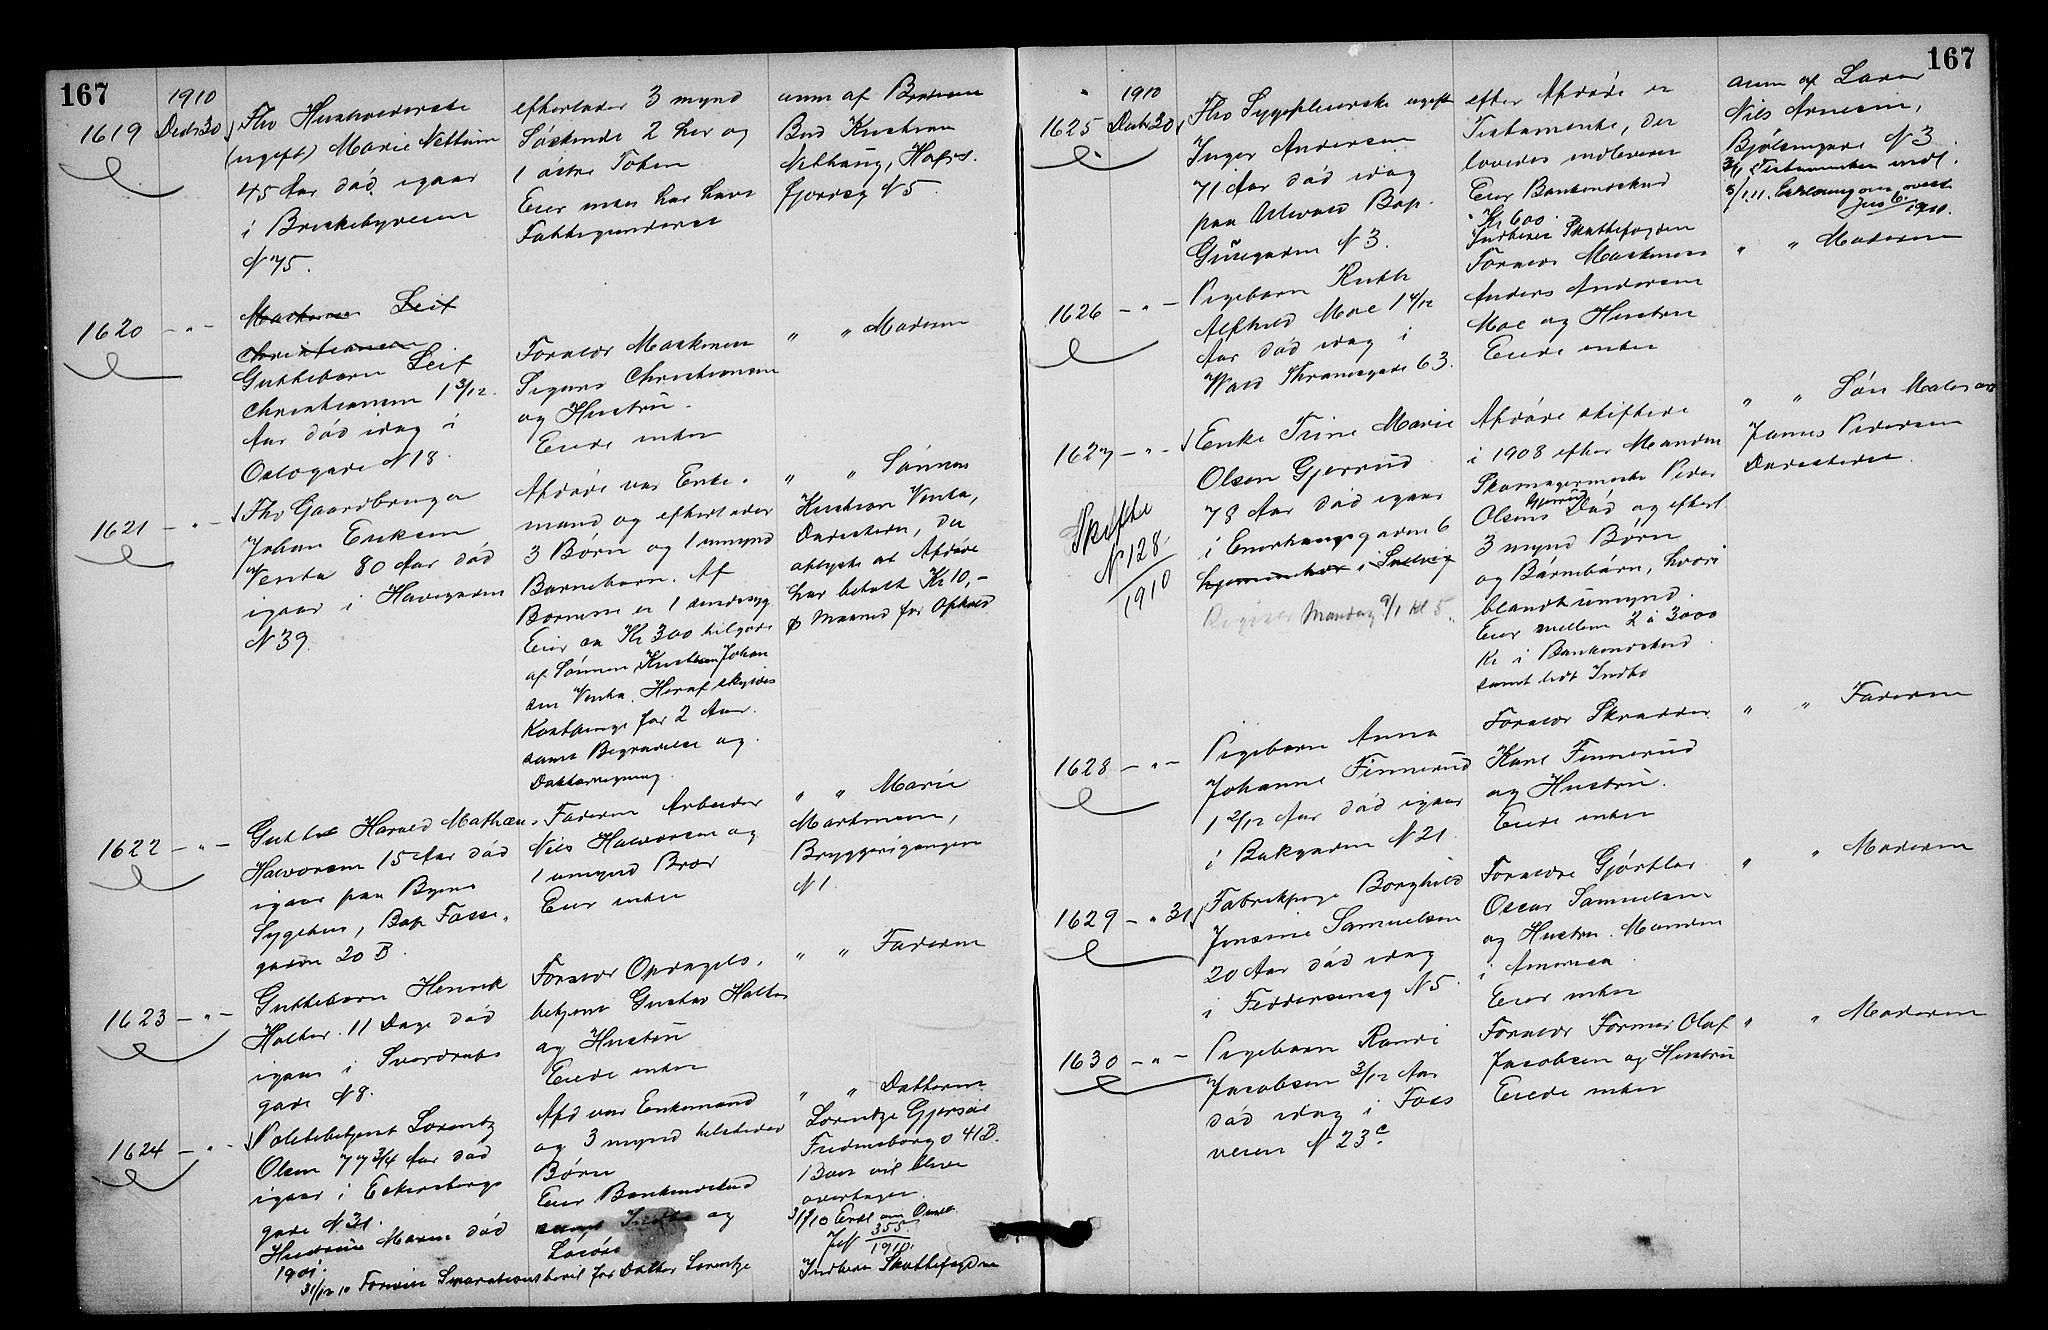 167
1910
1619 Decbr 30
Fhv Husholderske
(ugift) Marie Nettum
45 Aar død igaar
i Briskebyveien
N 75.
efterlader 3 mynd
Søskende 2 her og
1 østre Toten
Eier
Fattigunderst
anm af
Kristian
N 5.
1620 - " -
Leif
Christiansen
Guttebarn Leif
Christiansen 1 3/12
Aar død idag i
Oslogade N 18.
Forældr Maskinist
Sigurd Christiansen
og Hustru.
Eiede intet
" " Moderen
1621 - " -
Fhv Gaardbruger
Johan Eriksen
Venta 80 Aar død
igaar i Havegaden
N 39.
Afdøde var Enke-
mand og efterlader
3 Børn og 1 umynd
Barnebarn. Af
Børnene er 1 sindssyg
Eier ca Kr 300 tilgode
af Sønnen Kristian Johan
sen Venta. Heraf skyldes
Kostpenge for 2 Aar
samt Begravelse og
Doktorregning.
" " Sønnen
Kristian Venta,
Dalesteden, der
oplyste at Afdøde
har betalt Kr 10,-
p Maaned for Ophold
1622 - " -
Gutten Harald Mathæus
Halvorsen 15 Aar død
igaar paa Byens
Sygehus, Bop Fosse-
gaden 20 B.
Faderen Arbeider
Nils Halvorsen og
1 umynd Bror
Eier intet
" " Marie
Martinsen,
Bryggerigangen
N 1.
1623 - " -
Guttebarn Henrik
Holter 11 Dage død
igaar i Sverdrups
gade N 8.
Forældr Opsyns-
betjent Gustav Holter
og Hustru
Eiede intet
" " Faderen
1624 - " -
Politibetjent Lorentz
Olsen 77 3/4 Aar død
igaar i Eckersbergs
gade N 31.
Hustruen Maren død
1901.
Afd var Enkemand
og 3 mynd tilstede
Børn
Eier Bankindskud
samt Indbo og
Løsøre
" " Datteren
Lorentze Gjersøe
Fredensborgv 41 B.
Boet vil blive
overtaget.
31/12 10 Erkl om Overt
Jno 355/1910.
Indberet Skattefogden
31/12 10 Forevist Separationsbevil for Datter Lorentze
167
1910
1625 Decbr 30
Fhv Sygepleierske ugift
Inger Andersen
71 Aar død idag
paa Ullevaal Bop.
Grüsgaden N 3.
efter Afdøde er
Testamente, der
lovedes indleveret
Eier Bankindskud
Kr 600.
Indberet Skattefogden
anm af
Nils Arnesen,
Bjølsengade N 3
Testamentet indl.
5/1.11. Erklæring om overt
1910.
1626 - " -
Pigebarn Ruth
Alfhild Moe 1 4/12
Aar død idag i
Wald Thranesgade 63.
Forældr Maskinist
Anders Andersen
Moe og Hustru
Eiede intet
" " Moderen
1627 - " -
Enke Trine Marie
Olsen Gjerrud
78 Aar død igaar
i Enerhaugsgaden 6
Mandag 9/1 kl 5.
Skifte
N 128
1910
Afdøde skiftede
i 1908 efter Manden
Skomagermester Peder
Olsens Gjerrud Død og efterl
3 mynd Børn
og Børnebørn, hvori
blandt umynd.
Eier mellem 2 à 3000
Kr i Bankindskud
samt lidt Indbo
" " Søn Maler
James Pedersen
1628 - " -
Pigebarn Anna
Johanne Finnerud
1 2/12 Aar død igaar
i Bakgaden N 21
Forældr Skrædder
Karl Finnerud
og Hustru.
Eiede intet
" " Faderen
1629 - " 31
Fabrikpige Borghild
Jensine Samuelsen
20 Aar død idag
i Feddersensg N 5.
Forældre Gjørtler
Oscar Samuelsen
og Hustru. Manden
i Amerika
Eier intet
" " Moderen
1630 - " -
Pigebarn Randi
Jacobsen 3/12 Aar
død idag i Foss
veien N 23 c.
Forældr Former Olaf
Jacobsen og Hustru
Eiede intet
" " Moderen